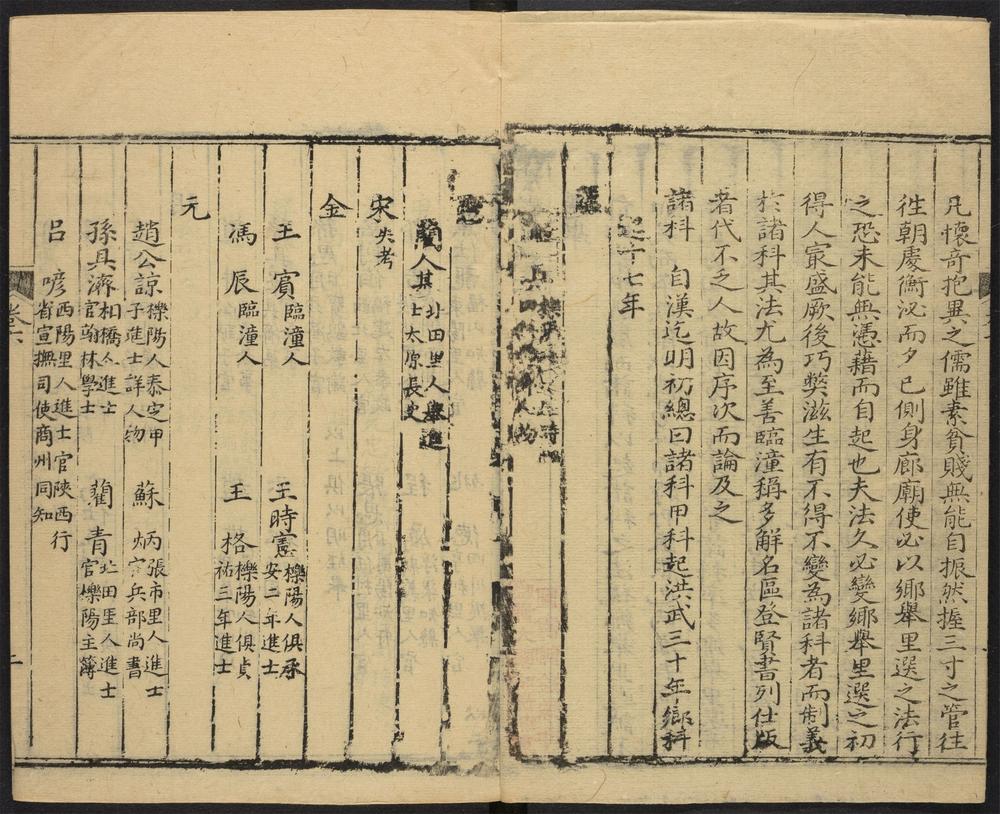 凡懷奇抱異之儒雖素貧賤無能自振然握三寸之管往
徃朝處衡泌而夕已側身廊廟使必以鄉舉里選之法行
之恐未能無憑藉而自起也夫法久必變鄉舉里選之初
得人㝡盛厥後巧獘滋生有不得不變為諸科者而制義
於諸科其法尤為至善臨潼稱多觧名區登賢書列仕版
者代不乏人故因序次而論及之
諸科 自漢迄明初總曰諸科甲科起洪武三十年鄉科
十七年
人其 北田里人舉進
士太原長史
宋失考
金
王賓臨潼人 王時憲櫟陽人俱承
安二年進士
馮辰臨潼人 王格櫟陽人俱貞
祐三年進士
元
趙公諒櫟陽人泰定甲
子進士詳人物 蘇炳張市里人進士
官兵部尚書
孫具濟相橋人進士
官翰林學士 藺青北田里人進士
官櫟陽主簿
呂嗲西陽里人進士官陝西行
省宣撫司使商州同知
卷六